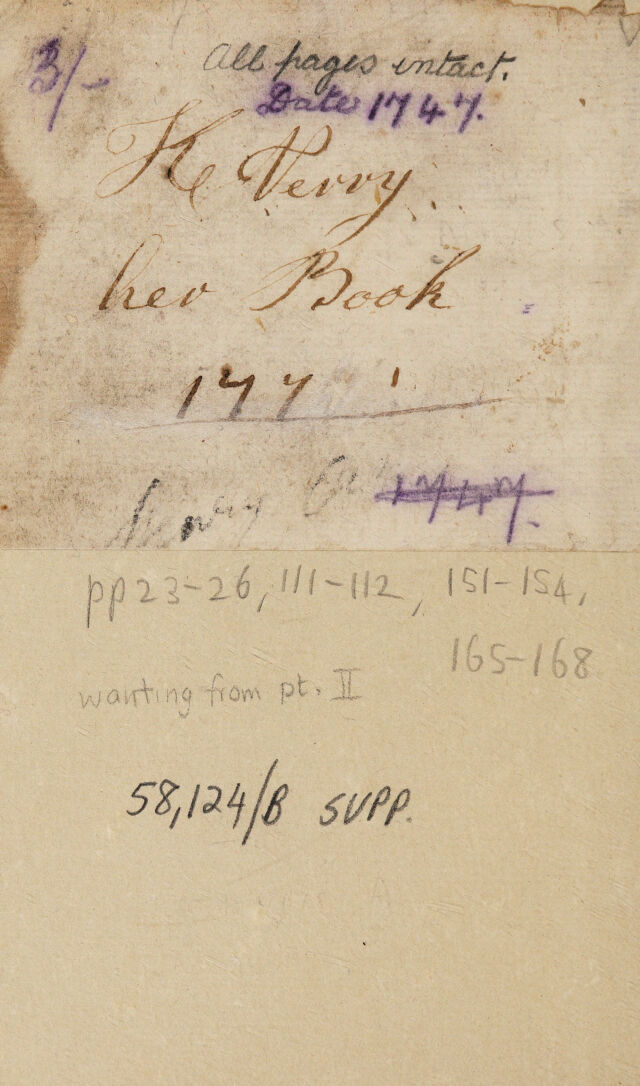 3/-
All pages intact.
Date 1747.
her Book
177
1747.
pp 23-26, 111-112, 151-154,
165-168
wanting from pt. II
58,124/B SUPP.